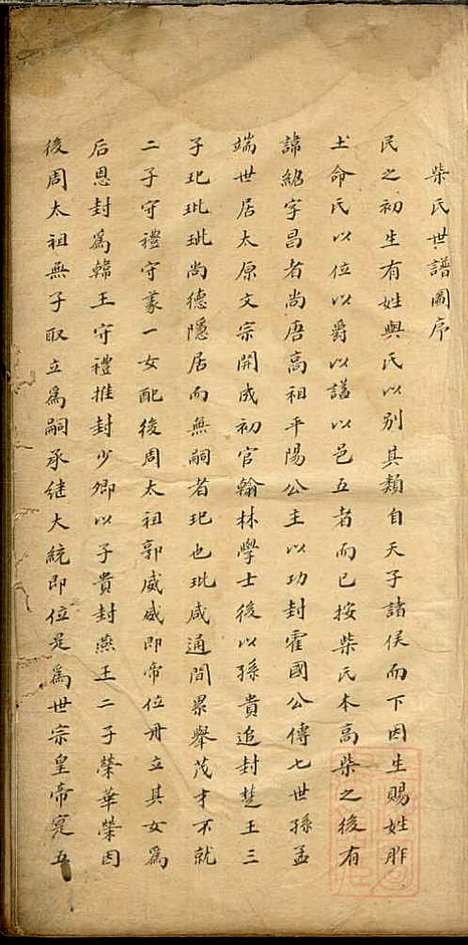 柴氏世譜圖序
民之初生有姓與氏以別其類自天子諸侯而下因生賜姓胙
土命氏以位以爵以諡以邑五者而已按柴氏本高柴之後有
諱紹字昌者尚唐高祖平陽公主以功封霍國公傳七世孫孟
端世居太原文宗開成初官翰林學士後以孫貴追封楚王三
子玘玭玼尚德隱居而無嗣者玘也玭咸通間累舉茂才不就
二子守禮守蒙一女配後周太祖郭威威即帝位冊立其女為
后恩封為韓王守禮推封少卿以子貴封燕王二子榮華榮因
後周太祖無子取立為嗣承繼大統即位是為世宗皇帝寔五